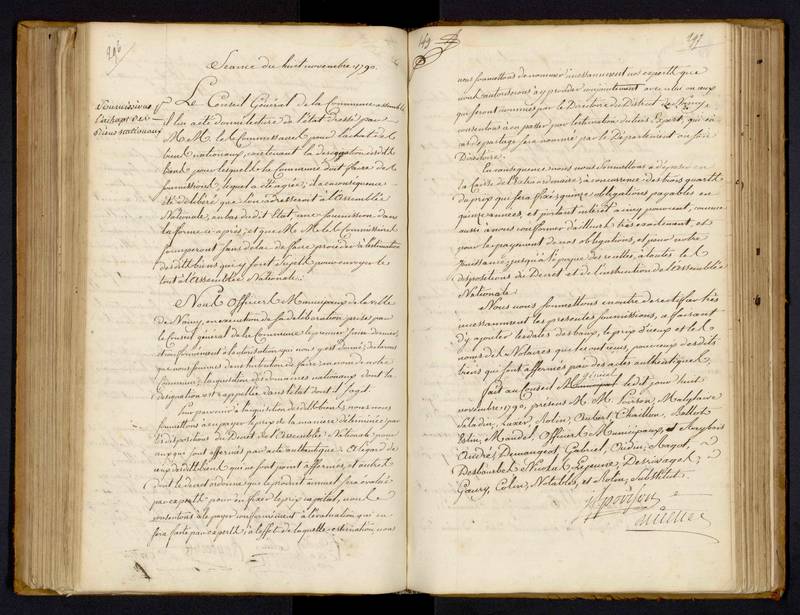 296
Seance du huit novembre 1790.
Soumissions p.r
l'achapt des
Biens nationaux
Le Conseil Général de la Commune assemblé
il lui a été donné lecture de l'état dressé par
M.M. les Commissaires pour l'achat des
biens nationaux, contenant la designation desdits
biens pour lesquels la Commune doit faire des
soumissions, lequel a été agréé; et en conséquence
été délibéré que l'on adresseroit à l'assemblée
Nationale, au bas dudit Etat, une soumission dans
la forme ci-après; et que M.M. les Commissaires
pour faire procéder à l'estimation
desdits biens qui y sont sujets pour envoyer le
tout à l'Assemblée Nationale.
Nous Officiers Municipaux de la ville
de Nancy, en exécution de la deliberation prise par
le Conseil général de la Commune le premier Juin dernier,
et conformément à l'autorisation qui nous y est donnée; declarons
que nous sommes dans l'intention de faire, au nom de notre
Commune, l'acquisition des domaines nationaux dont la
designation est rappellée dans l'état dont il s'agit.
Pour parvenir à l'acquisition desdits biens, nous nous
soumettons d'en payer le prix de la manière déterminée par
les dispositions du Decret de l'Assemblée Nationale pour
ceux qui sont affermés par acte authentique: à l'égard de
ceux desdits biens qui ne sont point affermés, et autres
dont le decret ordonne que le produit annuel sera évalué
par experts pour en fixer le prix capital, nous
consentons à le payer conformément à l'évaluation qui en
sera faite par experts; à l'effet de laquelle estimation, nous
149
297
nous soumettons de nommer incessamment nos experts que
nous autorisons à y procéder conjointement avec celui ou ceux
qui seront nommés par le Directoire du District de Nancy,
consentons à en passer par l'estimation du tiers Expert, qui en
cas de partage sera nommé par le Département ou son
Directoire.
En conséquence nous nous soumettons à déposer en
la Caisse de l'Extraordinaire, à concurrence des trois quarts
du prix qui sera fixé, quinze obligations payables en
quinze années et portant intérêt à cinq pour cent, comme
aussi à nous conformer d'ailleurs très exactement, et
pour le payement de nos obligations, et pour notre
jouissance jusqu'à l'époque des reventes, à toutes les
dispositions du Decret et de l'instruction de l'Assemblée
Nationale.
Nous nous soumettons en outre de rectifier très
incessamment les présentes soumissions, en faisant
d'y ajouter les dates des baux, le prix d'iceux et les
noms des Notaires qui les ont reçus, pour ceux desdits
biens qui sont affermés par des actes authentiques.
fait au Conseil général ledit jour huit
novembre 1790, présens M.M. Poirson,
Saladin, Auxer, Rolin, Aubert, Chaillon,
Mandel, Officiers Municipaux,
André, Demangeot, Gabriel, Oudin, Hugot,
Lejeune, Desrivages,
Gaury, Colin, Notables, et Rolin, Substitut.
Poirson